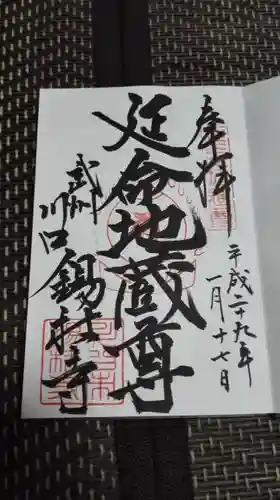 奉拝
平成二十九年
一月十七日
延命地蔵尊
武州
川口
錫杖寺